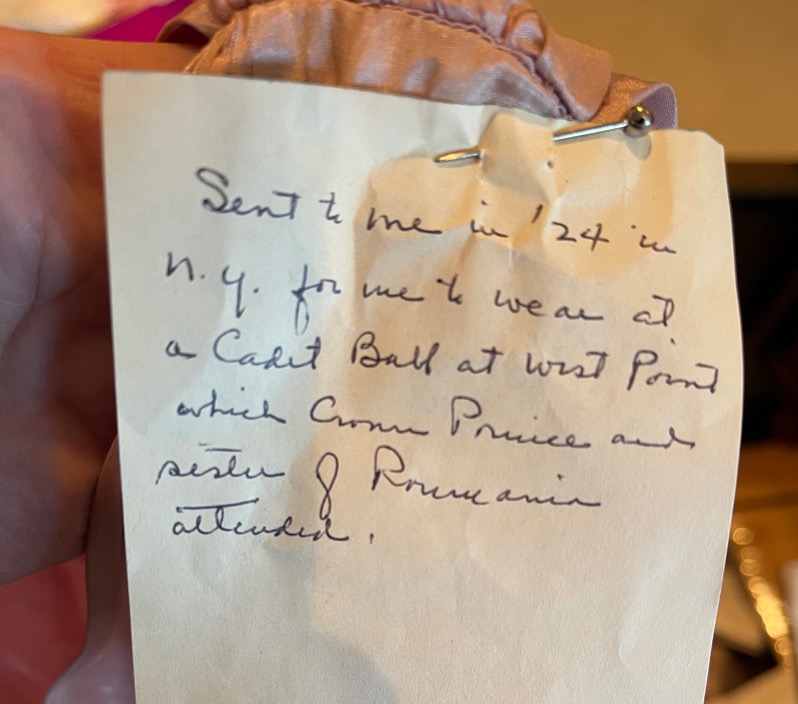 Sent to me in '24 in
N.Y. for me to wear at
a Cadet Ball at West Point
which Crown Prince and
sister of Roumania
attended.